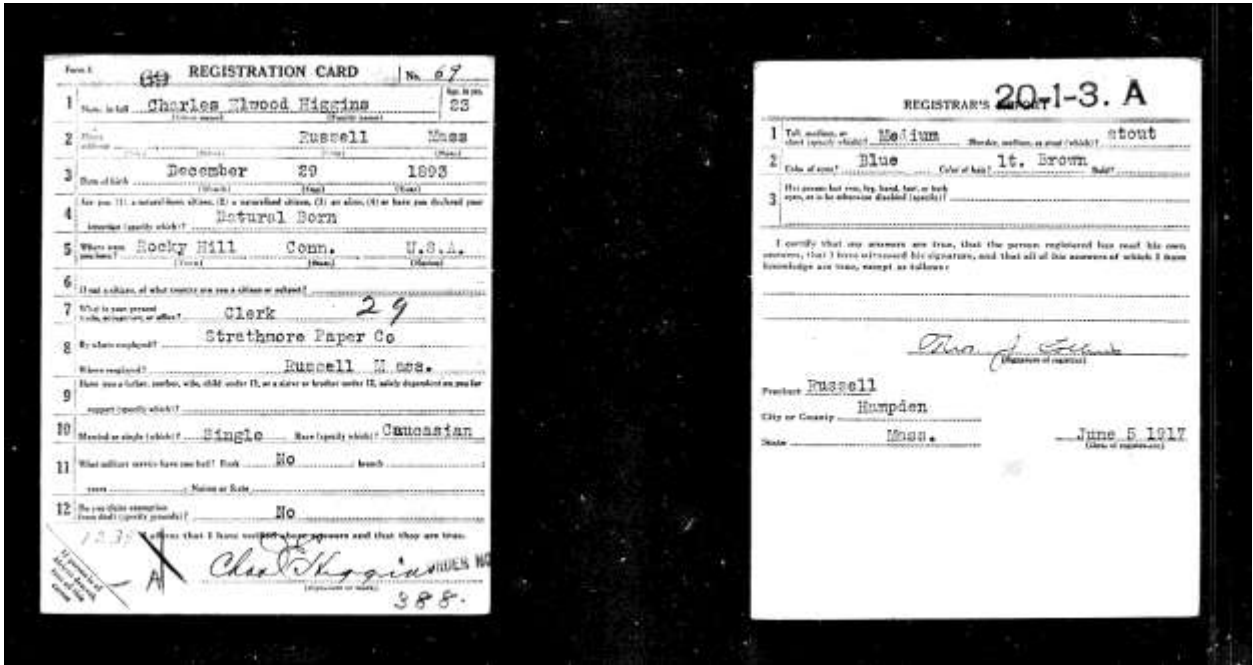 Form 1 69 REGISTRATION CARD No. 69
1 Name in full Charles Elwood Higgins Age, in yrs. 23
(Given name) (Family name)
2 Home address Russell Mass
(No.) (Street) (City) (State)
3 Date of birth December 29 1893
(Month) (Day) (Year)
Are you (1) a natural-born citizen, (2) a naturalized citizen, (3) an alien, (4) or have you declared your
4 intention (specify which)? Natural Born
5 Where were you born? Rocky Hill Conn. U.S.A.
(Town) (State) (Nation)
6 If not a citizen, of what country are you a citizen or subject?
7 What is your present trade, occupation, or office? Clerk 29
8 By whom employed? Strathmore Paper Co
Where employed? Russell Mass.
9 Have you a father, mother, wife, child under 12, or a sister or brother under 12, solely dependent on you for
support (specify which)?
10 Married or single (which)? Single Race (specify which)? Caucasian
11 What military service have you had? Rank No ; branch ;
years ; Nation or State
12 Do you claim exemption from draft (specify grounds)? No
I affirm that I have verified above answers and that they are true.
A Chas E Higgins
(Signature or mark)
ORDER NO
388.
If person is of African descent, tear off this corner
REGISTRAR'S REPORT 20-1-3. A
1 Tall, medium, or short (specify which)? Medium Slender, medium, or stout (which)? stout
2 Color of eyes? Blue Color of hair? lt. Brown Bald?
3 Has person lost arm, leg, hand, foot, or both
eyes, or is he otherwise disabled (specify)?
I certify that my answers are true, that the person registered has read his own
answers, that I have witnessed his signature, and that all of his answers of which I have
knowledge are true, except as follows:
(Signature of registrar)
Precinct Russell
City or County Hampden
State Mass. June 5 1917
(Date of registration)